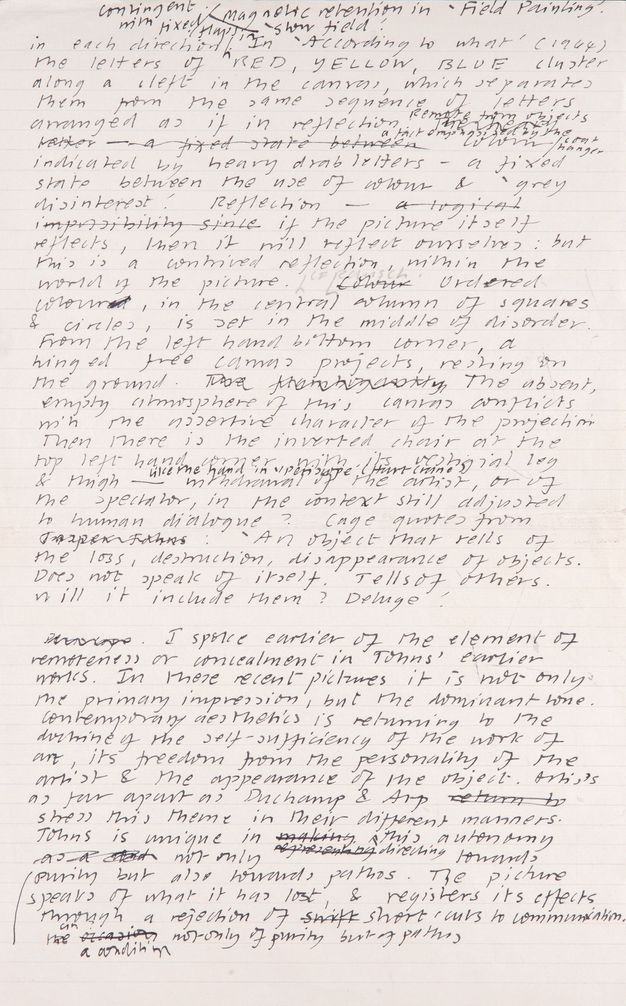 contingent (Magnetic retention in 'Field Painting'.
with fixed (flag), slow field'.
in each direction. In 'According to what' (1964)
the letters of RED, YELLOW, BLUE cluster
along a cleft in the canvas, which separates
them from the same sequence of letters
arranged as if in reflection, Remote from objects
a fact emphasized by the
latter — a fixed state between colour / coat hanger
indicated by heavy drab letters – a fixed
state between the use of colour & 'grey
disinterest'. Reflection — a logical
impossibility since if the picture itself
reflects, then it will reflect ourselves: but
this is a contrived reflection within the
world of the picture. Colour Ordered
coloured, in the central column of squares
& circles, is set in the middle of disorder.
From the left hand bottom corner, a
hinged free canvas projects, resting on
the ground. The The absent,
empty atmosphere of this canvas conflicts
with the assertive character of the projection
Then there is the inverted chair at the
top left hand corner with its vestigial leg
like the hand in 'Periscope' (Hart Crane)
& thigh — withdrawal of the artist, or of
the spectator, in the context still adjusted
to human dialogue? Cage quotes from
Jasper Johns: 'An object that tells of
the loss, destruction, disappearance of objects.
Does not speak of itself. Tells of others.
Will it include them? Deluge'.
Periscope. I spoke earlier of the element of
remoteness or concealment in Johns' earlier
works. In these recent pictures it is not only
the primary impression, but the dominant tone.
Contemporary aesthetics is returning to the
doctrine of the self-sufficiency of the work of
art, its freedom from the personality of the
artist & the appearance of the object. Artists
as far apart as Duchamp & Arp return to
stress this theme in their different manners.
Johns is unique in making this autonomy
representing directing
as a not only towards
purity but also towards pathos. The picture
speaks of what it has lost, & registers its effects
through a rejection of swift short cuts to communication.
the occasion not only of purity but of pathos
a condition